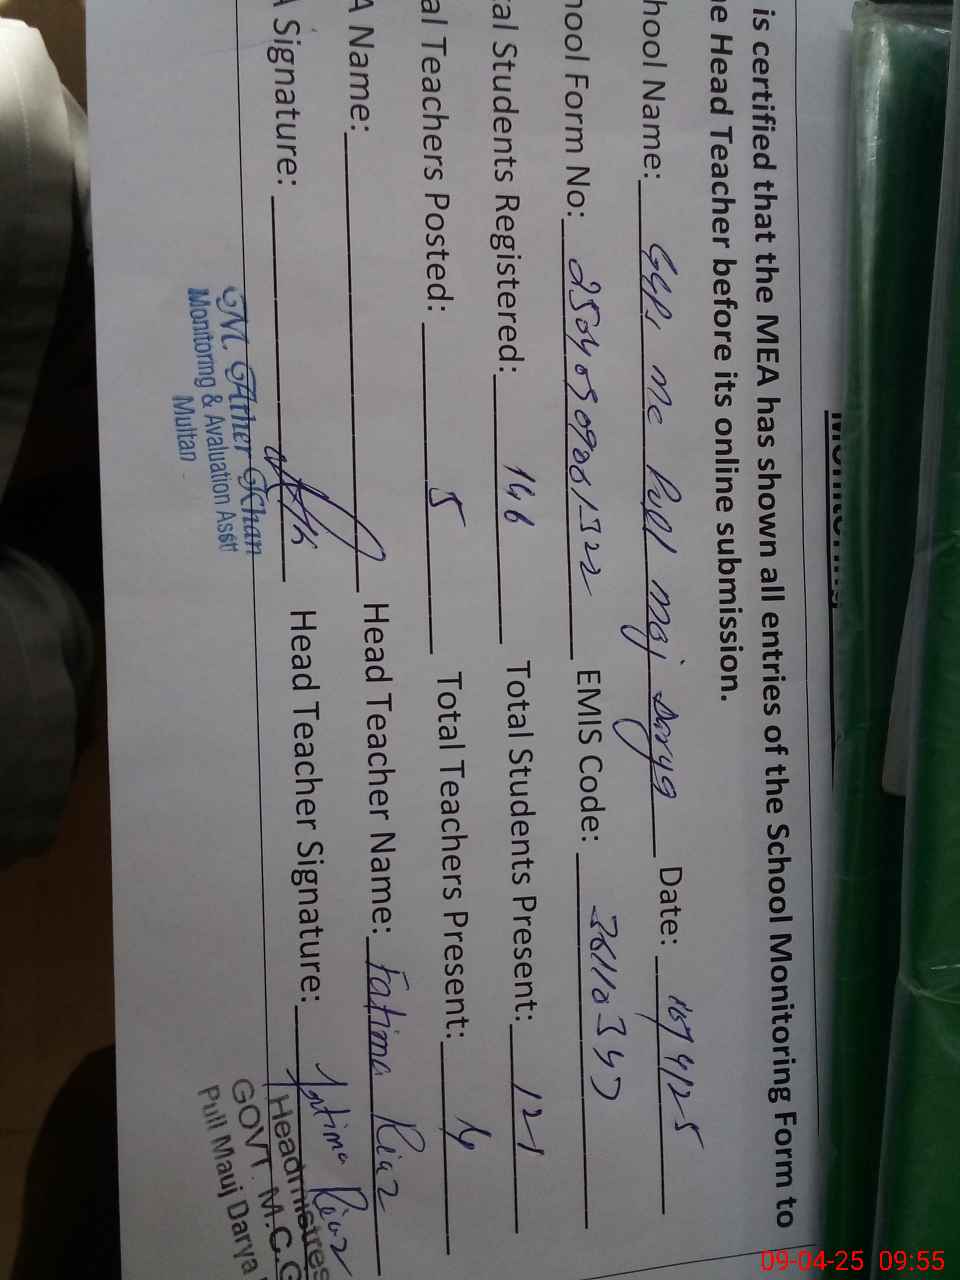 is certified that the MEA has shown all entries of the School Monitoring Form to
e Head Teacher before its online submission.
hool Name: GGPS MC Pull Moj Darya Date: 4/25
hool Form No: EMIS Code:
al Students Registered: 146 Total Students Present: 121
al Teachers Posted: 5 Total Teachers Present: 4
A Name: Head Teacher Name: Fatima Riaz
A Signature: Head Teacher Signature: Fatima Riaz
M. Ather Khan
Monitoring & Avaluation Asst
Multan
Headmistres
GOVT. M.C.G
Pull Mauj Darya
09-04-25 09:55